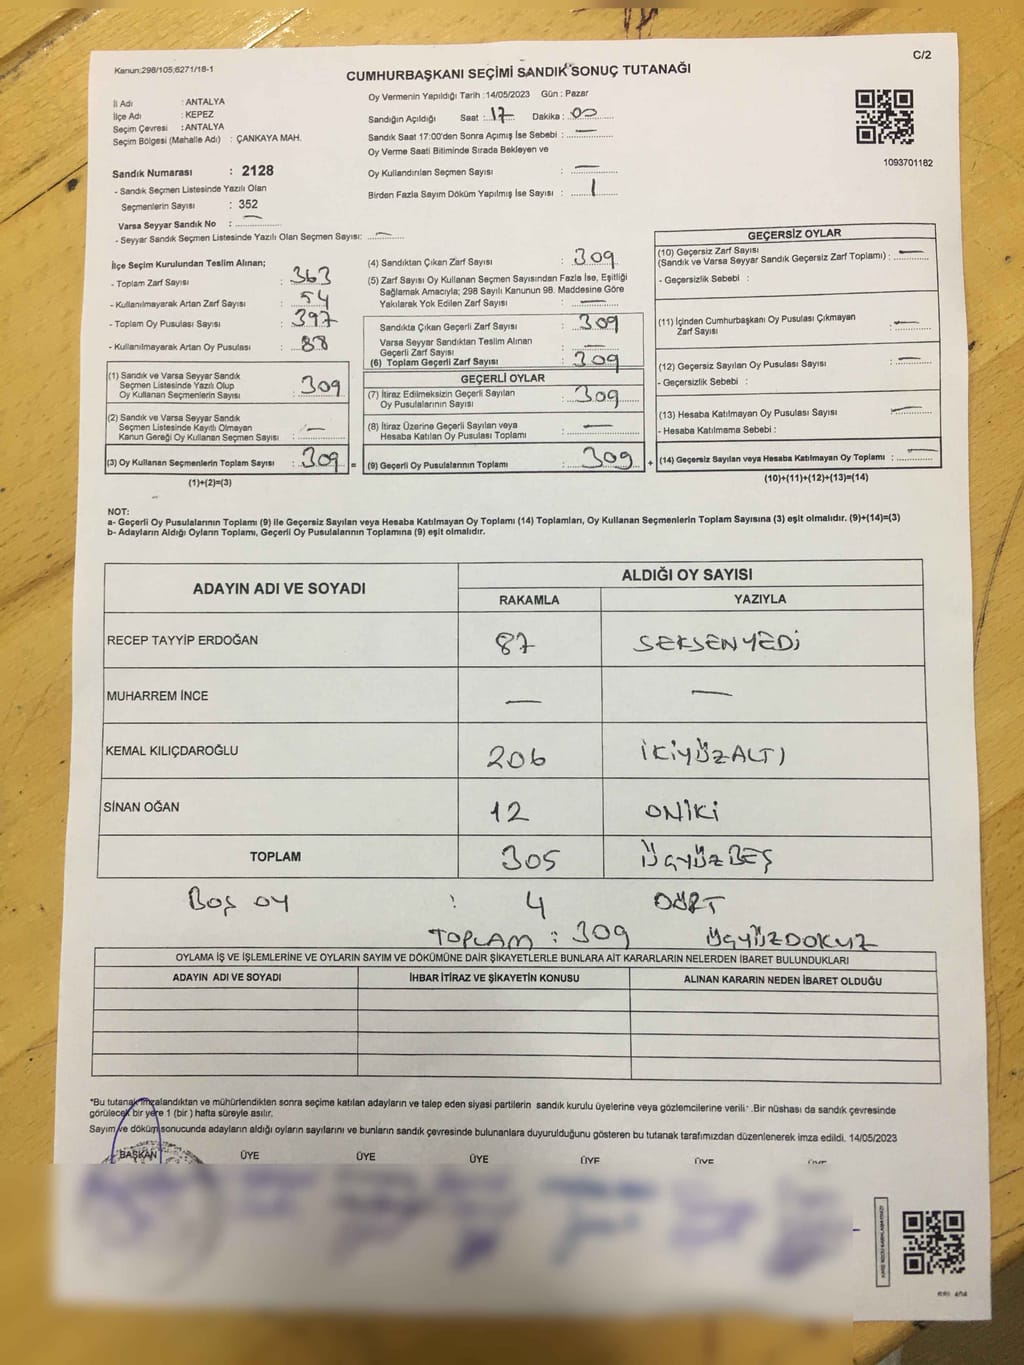 C/2
Kanun:298/105;6271/18-1
CUMHURBAŞKANI SEÇİMİ SANDIK SONUÇ TUTANAĞI
İl Adı : ANTALYA
İlçe Adı : KEPEZ
Seçim Çevresi : ANTALYA
Seçim Bölgesi (Mahalle Adı) : ÇANKAYA MAH.
Oy Vermenin Yapıldığı Tarih :14/05/2023 Gün : Pazar
Sandığın Açıldığı Saat : 17 Dakika : 00
Sandık Saat 17:00'den Sonra Açımış İse Sebebi : —
Oy Verme Saati Bitiminde Sırada Bekleyen ve
Oy Kullandırılan Seçmen Sayısı : —
Birden Fazla Sayım Döküm Yapılmış İse Sayısı : 1
1093701182
Sandık Numarası : 2128
- Sandık Seçmen Listesinde Yazılı Olan
Seçmenlerin Sayısı : 352
Varsa Seyyar Sandık No : —
- Seyyar Sandık Seçmen Listesinde Yazılı Olan Seçmen Sayısı: —
İlçe Seçim Kurulundan Teslim Alınan;
- Toplam Zarf Sayısı : 363
- Kullanılmayarak Artan Zarf Sayısı : 54
- Toplam Oy Pusulası Sayısı : 397
- Kullanılmayarak Artan Oy Pusulası : 88
(1) Sandık ve Varsa Seyyar Sandık
Seçmen Listesinde Yazılı Olup
Oy Kullanan Seçmenlerin Sayısı : 309
(2) Sandık ve Varsa Seyyar Sandık
Seçmen Listesinde Kayıtlı Olmayan
Kanun Gereği Oy Kullanan Seçmen Sayısı : —
(3) Oy Kullanan Seçmenlerin Toplam Sayısı : 309 =
(1)+(2)=(3)
(4) Sandıktan Çıkan Zarf Sayısı : 309
(5) Zarf Sayısı Oy Kullanan Seçmen Sayısından Fazla İse, Eşitliği
Sağlamak Amacıyla; 298 Sayılı Kanunun 98. Maddesine Göre
Yakılarak Yok Edilen Zarf Sayısı : —
Sandıkta Çıkan Geçerli Zarf Sayısı : 309
Varsa Seyyar Sandıktan Teslim Alınan
Geçerli Zarf Sayısı : —
(6) Toplam Geçerli Zarf Sayısı : 309
GEÇERLİ OYLAR
(7) İtiraz Edilmeksizin Geçerli Sayılan
Oy Pusulalarının Sayısı : 309
(8) İtiraz Üzerine Geçerli Sayılan veya
Hesaba Katılan Oy Pusulası Toplamı : —
(9) Geçerli Oy Pusulalarının Toplamı : 309 +
GEÇERSİZ OYLAR
(10) Geçersiz Zarf Sayısı
(Sandık ve Varsa Seyyar Sandık Geçersiz Zarf Toplamı) : —
- Geçersizlik Sebebi :
(11) İçinden Cumhurbaşkanı Oy Pusulası Çıkmayan
Zarf Sayısı : —
(12) Geçersiz Sayılan Oy Pusulası Sayısı : —
- Geçersizlik Sebebi :
(13) Hesaba Katılmayan Oy Pusulası Sayısı : —
- Hesaba Katılmama Sebebi :
(14) Geçersiz Sayılan veya Hesaba Katılmayan Oy Toplamı : —
(10)+(11)+(12)+(13)=(14)
NOT:
a- Geçerli Oy Pusulalarının Toplamı (9) ile Geçersiz Sayılan veya Hesaba Katılmayan Oy Toplamı (14) Toplamları, Oy Kullanan Seçmenlerin Toplam Sayısına (3) eşit olmalıdır. (9)+(14)=(3)
b- Adayların Aldığı Oyların Toplamı, Geçerli Oy Pusulalarının Toplamına (9) eşit olmalıdır.
ADAYIN ADI VE SOYADI ALDIĞI OY SAYISI
RAKAMLA YAZIYLA
RECEP TAYYİP ERDOĞAN 87 SEKSENYEDİ
MUHARREM İNCE — —
KEMAL KILIÇDAROĞLU 206 İKİYÜZALTI
SİNAN OĞAN 12 ONİKİ
TOPLAM 305 ÜÇYÜZBEŞ
BOŞ OY : 4 DÖRT
TOPLAM : 309 ÜÇYÜZDOKUZ
OYLAMA İŞ VE İŞLEMLERİNE VE OYLARIN SAYIM VE DÖKÜMÜNE DAİR ŞİKAYETLERLE BUNLARA AİT KARARLARIN NELERDEN İBARET BULUNDUKLARI
ADAYIN ADI VE SOYADI İHBAR İTİRAZ VE ŞİKAYETİN KONUSU ALINAN KARARIN NEDEN İBARET OLDUĞU
*Bu tutanak imzalandıktan ve mühürlendikten sonra seçime katılan adayların ve talep eden siyasi partilerin sandık kurulu üyelerine veya gözlemcilerine verilir. Bir nüshası da sandık çevresinde
görülecek bir yere 1 (bir) hafta süreyle asılır.
Sayım ve döküm sonucunda adayların aldığı oyların sayılarını ve bunların sandık çevresinde bulunanlara duyurulduğunu gösteren bu tutanak tarafımızdan düzenlenerek imza edildi. 14/05/2023
BAŞKAN ÜYE ÜYE ÜYE ÜYE ÜYE ÜYE